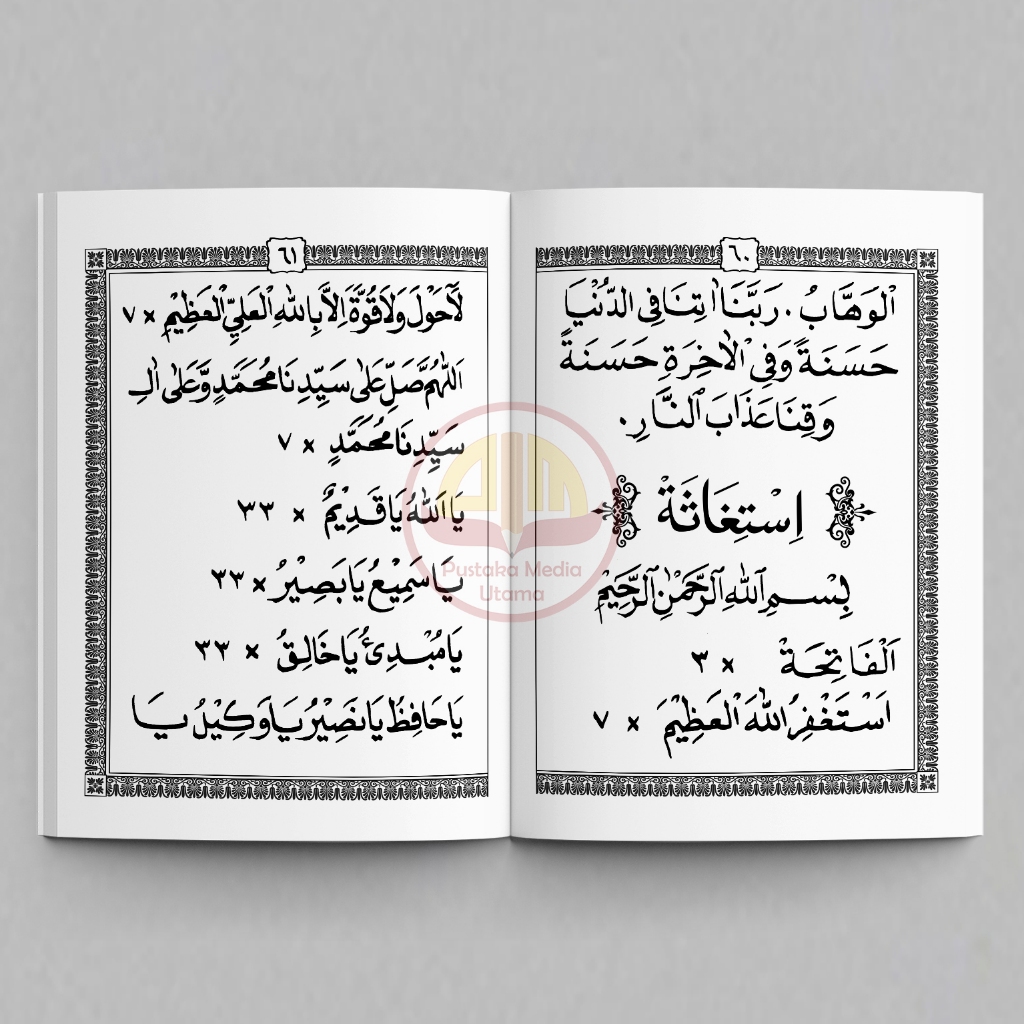 ٦٠
اَلْوَهَّابُ. رَبَّنَا اٰتِنَا فِى الدُّنْيَا
حَسَنَةً وَفِى الْاٰخِرَةِ حَسَنَةً
وَقِنَا عَذَابَ النَّارِ.
اِسْتِغَاثَةْ
بِسْمِ اللهِ الرَّحْمٰنِ الرَّحِيْمِ
اَلْفَاتِحَةْ × ٣
اَسْتَغْفِرُ اللهَ الْعَظِيْمَ × ٧
٦١
لَاحَوْلَ وَلَاقُوَّةَ اِلَّا بِاللهِ الْعَلِيِّ الْعَظِيْمِ × ٧
اَللّٰهُمَّ صَلِّ عَلٰى سَيِّدِنَا مُحَمَّدٍ وَّعَلٰى اٰلِ
سَيِّدِنَا مُحَمَّدٍ × ٧
يَا اَللهُ يَا قَدِيْمُ × ٣٣
يَا سَمِيْعُ يَا بَصِيْرُ × ٣٣
يَا مُبْدِئُ يَا خَالِقُ × ٣٣
يَا حَافِظُ يَا نَصِيْرُ يَا وَكِيْلُ يَا
Pustaka Media
Utama